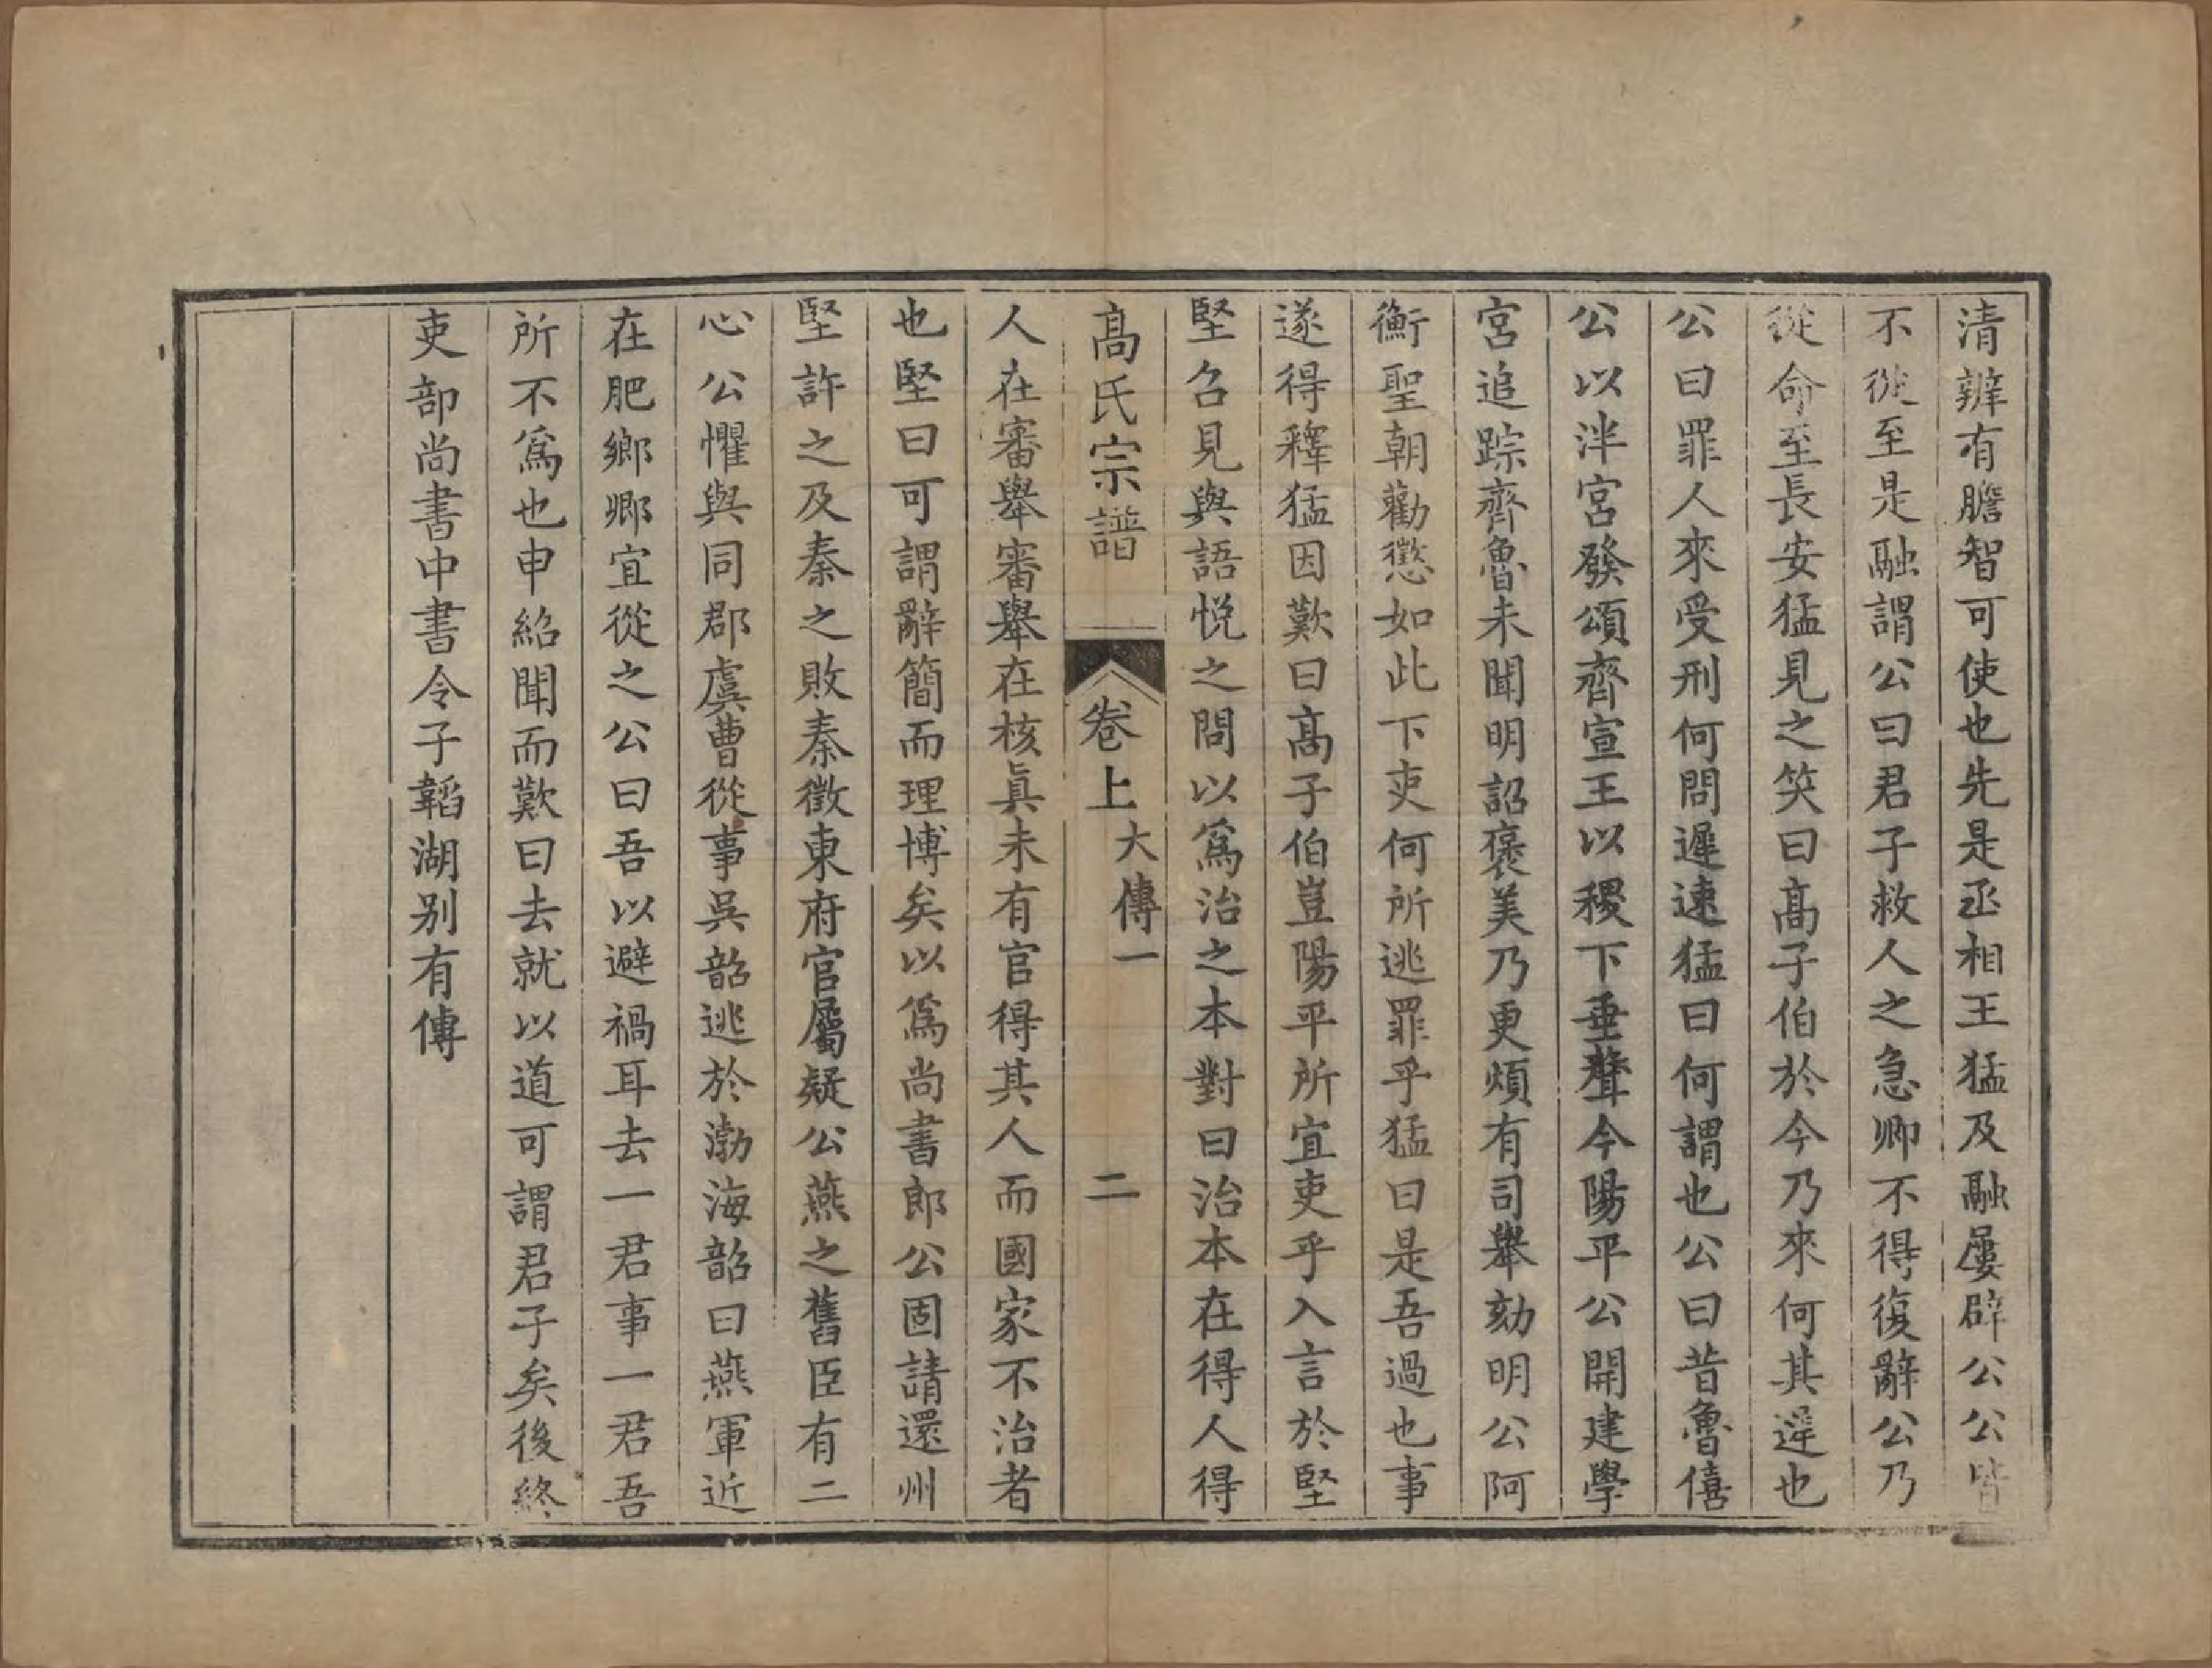 清辨有膽智可使也先是丞相王猛及融屢辟公公皆
不從至是融謂公曰君子救人之急卿不得復辭公乃
從命至長安猛見之笑曰髙子伯於今乃來何其遲也
公曰罪人來受刑何問遲速猛曰何謂也公曰昔魯僖
公以泮宮發頌齊宣王以稷下垂聲今陽平公開建學
宮追踪齊魯未聞明詔褒美乃更煩有司舉劾明公阿
衡聖朝勸懲如此下吏何所逃罪乎猛曰是吾過也事
遂得釋猛因歎曰髙子伯豈陽平所宜吏乎入言於堅
堅召見與語悅之問以爲治之本對曰治本在得人得
髙氏宗譜 卷上 大傳一 二
人在審舉審舉在核眞未有官得其人而國家不治者
也堅曰可謂辭簡而理博矣以爲尚書郎公固請還州
堅許之及秦之敗秦徵東府官屬疑公燕之舊臣有二
心公懼與同郡虞曹從事吳韶逃於渤海韶曰燕軍近
在肥鄉卿宜從之公曰吾以避禍耳去一君事一君吾
所不爲也申紹聞而歎曰去就以道可謂君子矣後終
吏部尚書中書令子韜湖别有傳